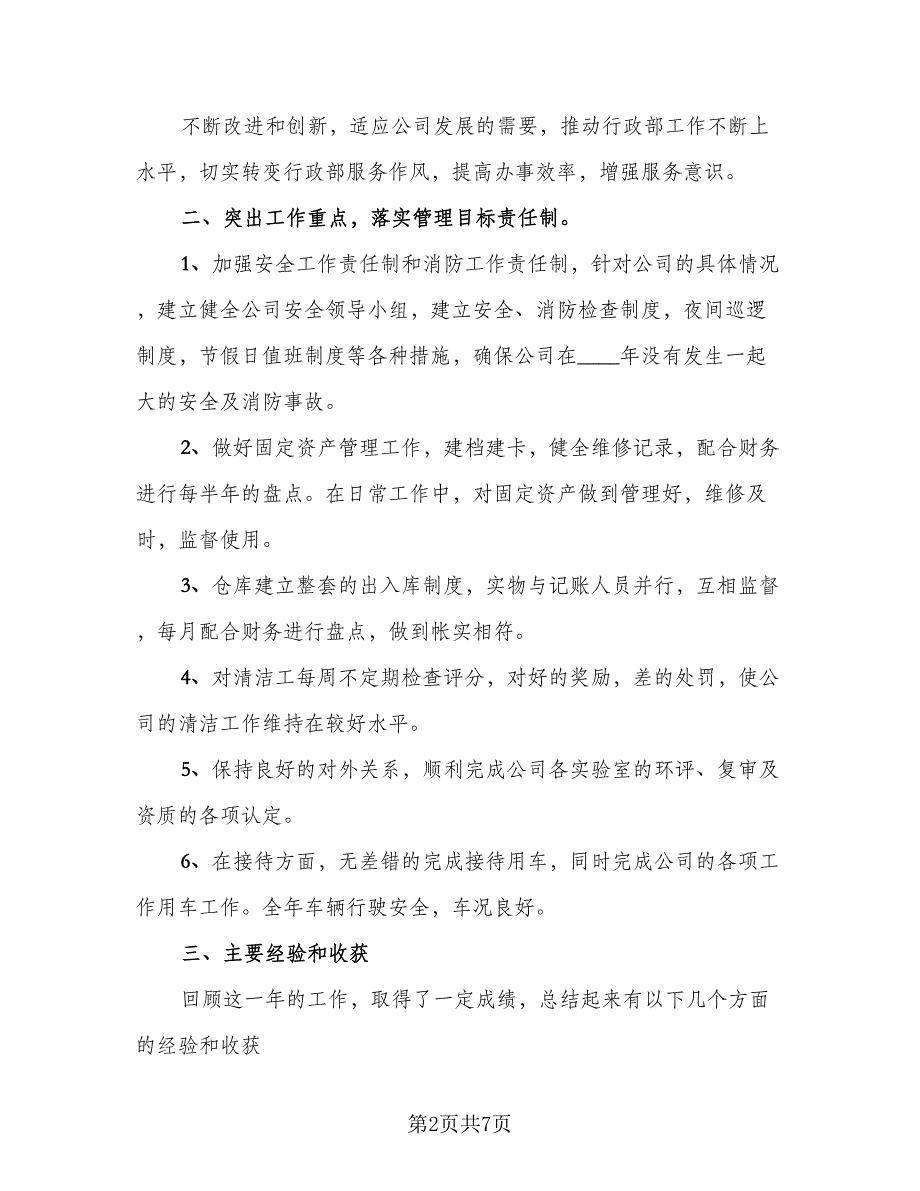 不断改进和创新，适应公司发展的需要，推动行政部工作不断上
水平，切实转变行政部服务作风，提高办事效率，增强服务意识。
二、突出工作重点，落实管理目标责任制。
1、加强安全工作责任制和消防工作责任制，针对公司的具体情况
，建立健全公司安全领导小组，建立安全、消防检查制度，夜间巡逻
制度，节假日值班制度等各种措施，确保公司在____年没有发生一起
大的安全及消防事故。
2、做好固定资产管理工作，建档建卡，健全维修记录，配合财务
进行每半年的盘点。在日常工作中，对固定资产做到管理好，维修及
时，监督使用。
3、仓库建立整套的出入库制度，实物与记账人员并行，互相监督
，每月配合财务进行盘点，做到帐实相符。
4、对清洁工每周不定期检查评分，对好的奖励，差的处罚，使公
司的清洁工作维持在较好水平。
5、保持良好的对外关系，顺利完成公司各实验室的环评、复审及
资质的各项认定。
6、在接待方面，无差错的完成接待用车，同时完成公司的各项工
作用车工作。全年车辆行驶安全，车况良好。
三、主要经验和收获
回顾这一年的工作，取得了一定成绩，总结起来有以下几个方面
的经验和收获
第2页共7页